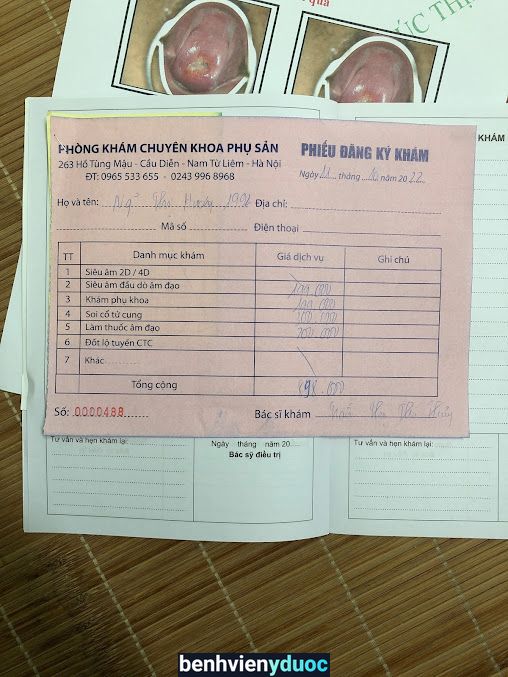 quả
ÚC TH
PHÒNG KHÁM CHUYÊN KHOA PHỤ SẢN
263 Hồ Tùng Mậu - Cầu Diễn - Nam Từ Liêm - Hà Nội
ĐT: 0965 533 655 - 0243 996 8968
PHIẾU ĐĂNG KÝ KHÁM
Ngày 11 tháng 10 năm 2022
KHÁM
Họ và tên: Ngô Thị 1992 Địa chỉ:
Mã số Điện thoại
TT Danh mục khám Giá dịch vụ Ghi chú
1 Siêu âm 2D / 4D
2 Siêu âm đầu dò âm đạo
3 Khám phụ khoa
4 Soi cổ tử cung
5 Làm thuốc âm đạo
6 Đốt lộ tuyến CTC
7 Khác
Tổng cộng
Số: 0000488 Bác sĩ khám
Tư vấn và hẹn khám lại:
Ngày tháng năm 20
Bác sỹ điều trị
Tư vấn và hẹn khám lại:
benhvienyduoc